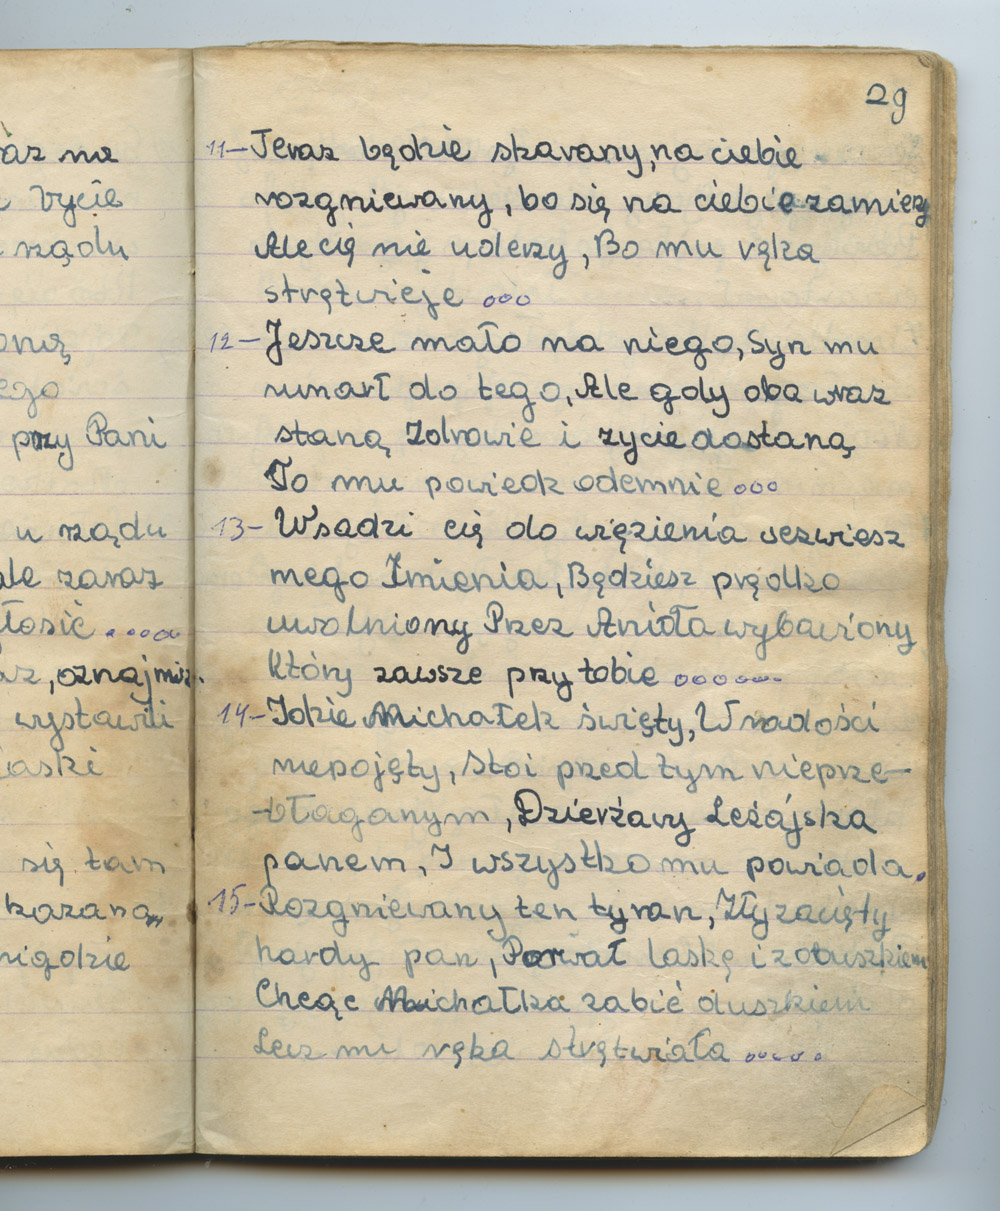 áz me
życie
rządu
onią
ego
przy Pani
u rządu
ale zaraz
łosić ....
, oznajmisz.
wystawili
łaski
się tam
kazaną„
nigdzie
29
11- Teraz będzie skarany, na ciebie
rozgniewany, bo się na ciebie zamierzy
Ale cię nie uderzy, Bo mu ręka
strętwieje ooo
12- Jeszcze mało na niego, Syn mu
umarł do tego, Ale gdy oba wraz
staną Zdrowie i zycie dostaną
To mu powiedz odemnie ooo
13- Wsadzi cię do więzienia wezwiesz
mego Imienia, Będziesz prędko
uwolniony Przez Anioła wybawiony
który zawsze przy tobie oooooo
14- Idzie Michałek święty, W radości
niepojęty, Stoi przed tym nieprze-
-błaganym, Dzierżawy Leżajska
panem, I wszystko mu powiada.
15- Rozgniewany ten tyran, Zły zacięty
hardy pan, Porwał laskę i z obuszkiem
Chcąc Michałka zabić duszkiem
Lecz mu ręka strętwiała .....